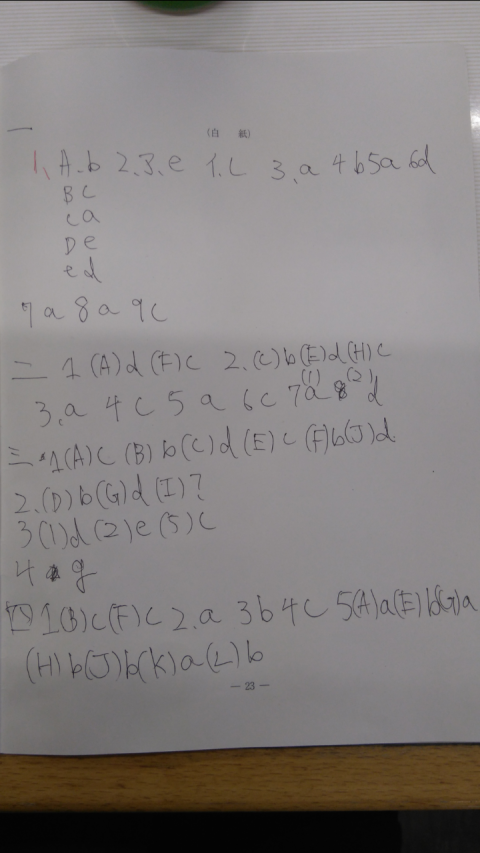 (白 紙)
一
1、A.b 2、3、e 1.c 3、a 4b5a6d
B c
c a
D e
e d
7a 8a 9c
二 1(A)d(F)c 2.(C)b(E)d(H)c
3.a 4c 5a 6c 7(1)a (2)d
三 1(A)c(B)b(C)d(E)c(F)b(J)d
2.(D)b(G)d(I)?
3(1)d(2)e(5)c
4 g
四 1(B)c(F)c 2.a 3b 4c 5(A)a(E)b(G)a
(H)b(J)b(K)a(L)b
― 23 ―